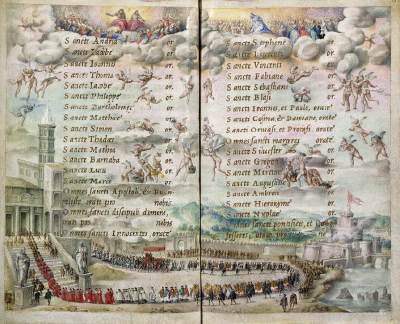 Sancte Andrea or.
Sancte Jacobe or.
Sancte Joannes or.
Sancte Thoma or.
Sancte Jacobe or.
Sancte Philippe or.
Sancte Bartholomee or.
Sancte Matthee or.
Sancte Simon or.
Sancte Thadee or.
Sancte Mathia or.
Sancte Barnaba or.
Sancte Luca or.
Sancte Marce or.
Omnes sancti Apostoli, et Euan-
geliste orate pro nobis
Omnes sancti discipuli domini,
orate pro nobis
Omnes sancti Innocentes, orate
Sancte Stephane or.
Sancte Laurenti or.
Sancte Vincenti or.
Sancte Fabiane or.
Sancte Sebastiane or.
Sancte Blasi or.
Sancti Joannes, et Paule, orate
Sancti Cosma, et Damiane, orate
Sancti Geruasi, et Protasi, orate
Omnes sancti martyres orate
Sancte Siluester or.
Sancte Gregori or.
Sancte Martine or.
Sancte Augustine or.
Sancte Ambrosi or.
Sancte Hieronyme or.
Sancte Nicolae or.
Omnes sancti pontifices, et Con-
fessores, orate pro